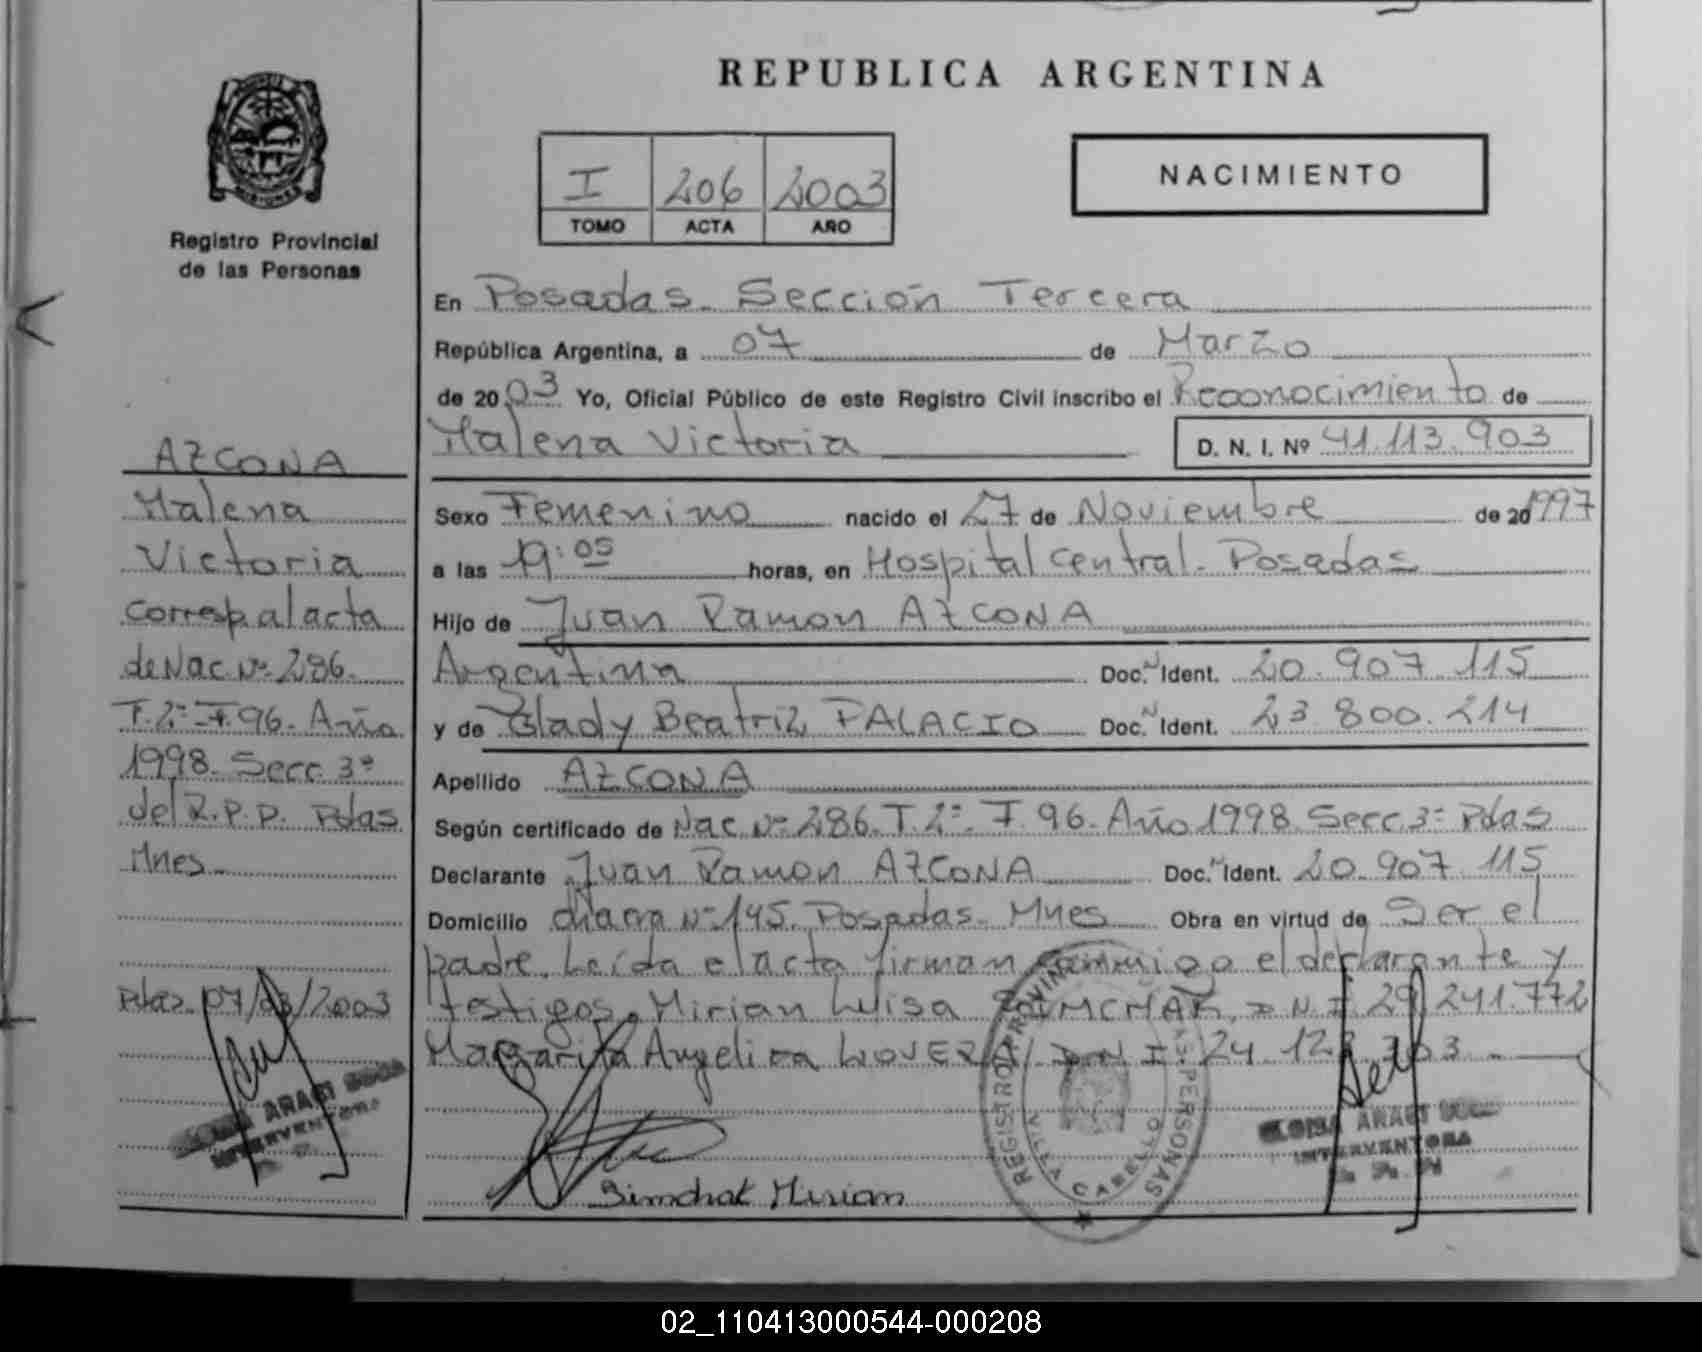 REPUBLICA ARGENTINA
I 206 2003
TOMO ACTA AÑO
NACIMIENTO
MISIONES
Registro Provincial
de las Personas
AZCONA
Malena
Victoria
corresp al acta
de Nac Nº 286.
T. 2º F. 96. Año
1998. Secc 3ª
del R.P.P. Pdas
Mnes
Pdas 07/03/2003
En Posadas. Sección Tercera
República Argentina, a 07 de Marzo
de 2003 Yo, Oficial Público de este Registro Civil inscribo el Reconocimiento de
Malena Victoria D. N. I. Nº 41.113.903
Sexo Femenino nacido el 27 de Noviembre de 20 1997
a las 19:05 horas, en Hospital central. Posadas
Hijo de Juan Ramon AZCONA
Argentina Doc. N Ident. 20.907.115
y de Glady Beatriz PALACIO Doc. N Ident. 23.800.214
Apellido AZCONA
Según certificado de Nac Nº 286. T. 2º. F. 96. Año 1998. Secc 3ª Pdas
Declarante Juan Ramon AZCONA Doc. N Ident. 20.907.115
Domicilio chacra Nº 145. Posadas. Mnes Obra en virtud de Ser el
padre. Leída el acta firman conmigo el declarante y
testigos. Mirian Luisa D.N.I. 29.241.772
Margarita Angelica D.N.I. 24.12
Simchak Mirian
REGISTRO PROVINCIAL DE LAS PERSONAS
VILLA CABELLO
ARACI
INTERVENTORA
ELOISA ARACI
INTERVENTORA
02_110413000544-000208